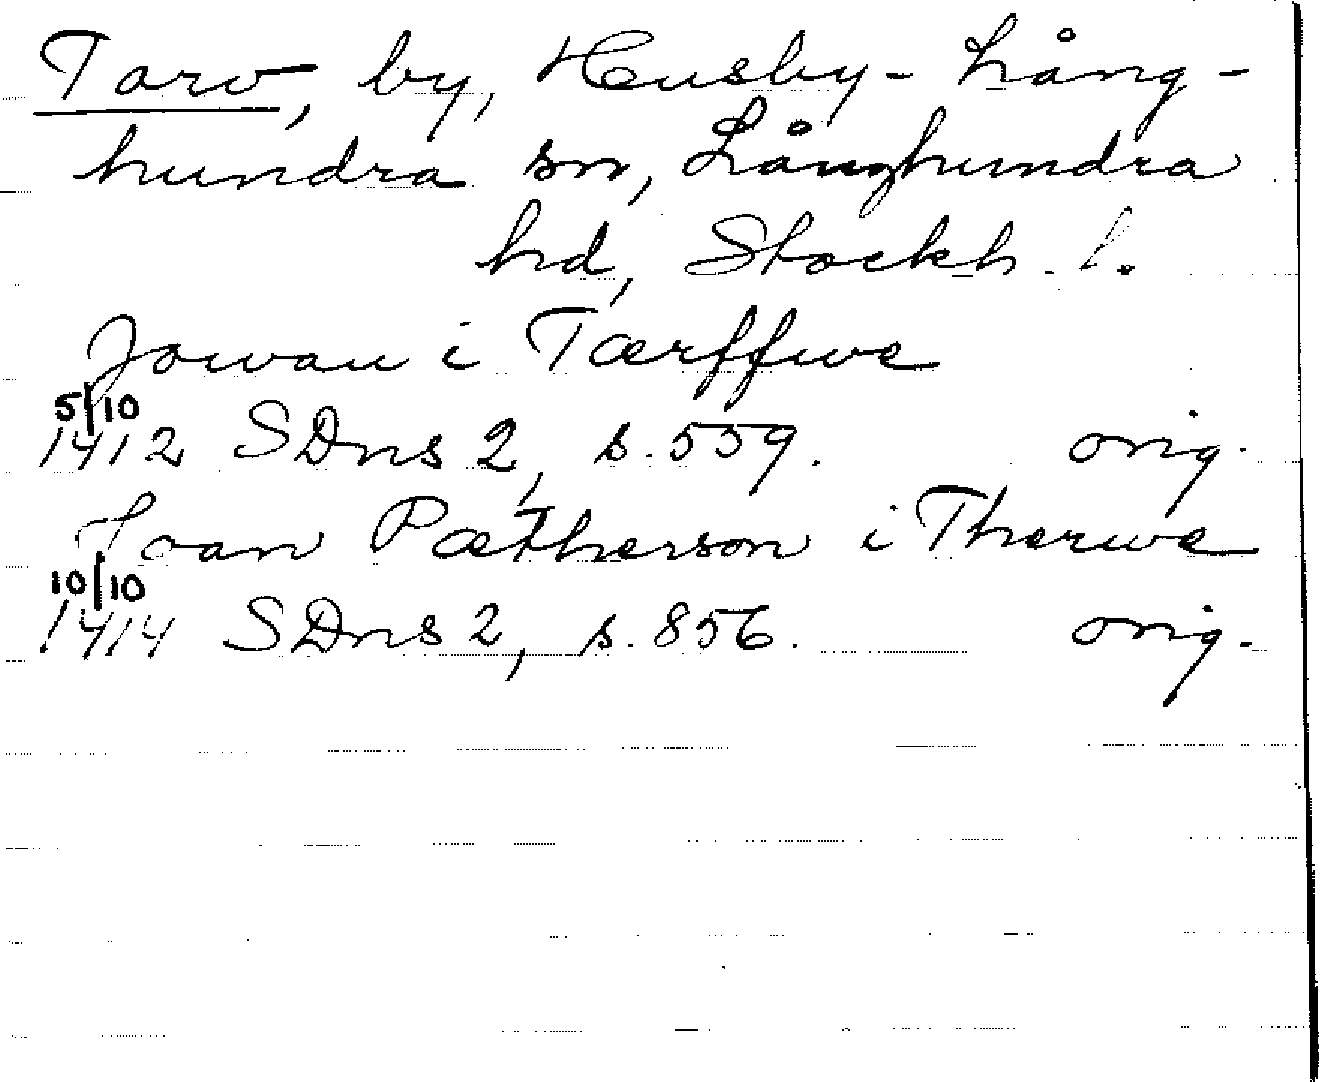 Tarv, by, Husby-Lång-
hundra sn, Långhundra
hd, Stockh. l.
Jowan i Tærffwe
5/10
1412 SDns 2, s. 559. orig.
Joan Pætherson i Thærwe
10/10
1414 SDns 2, s. 856. orig.